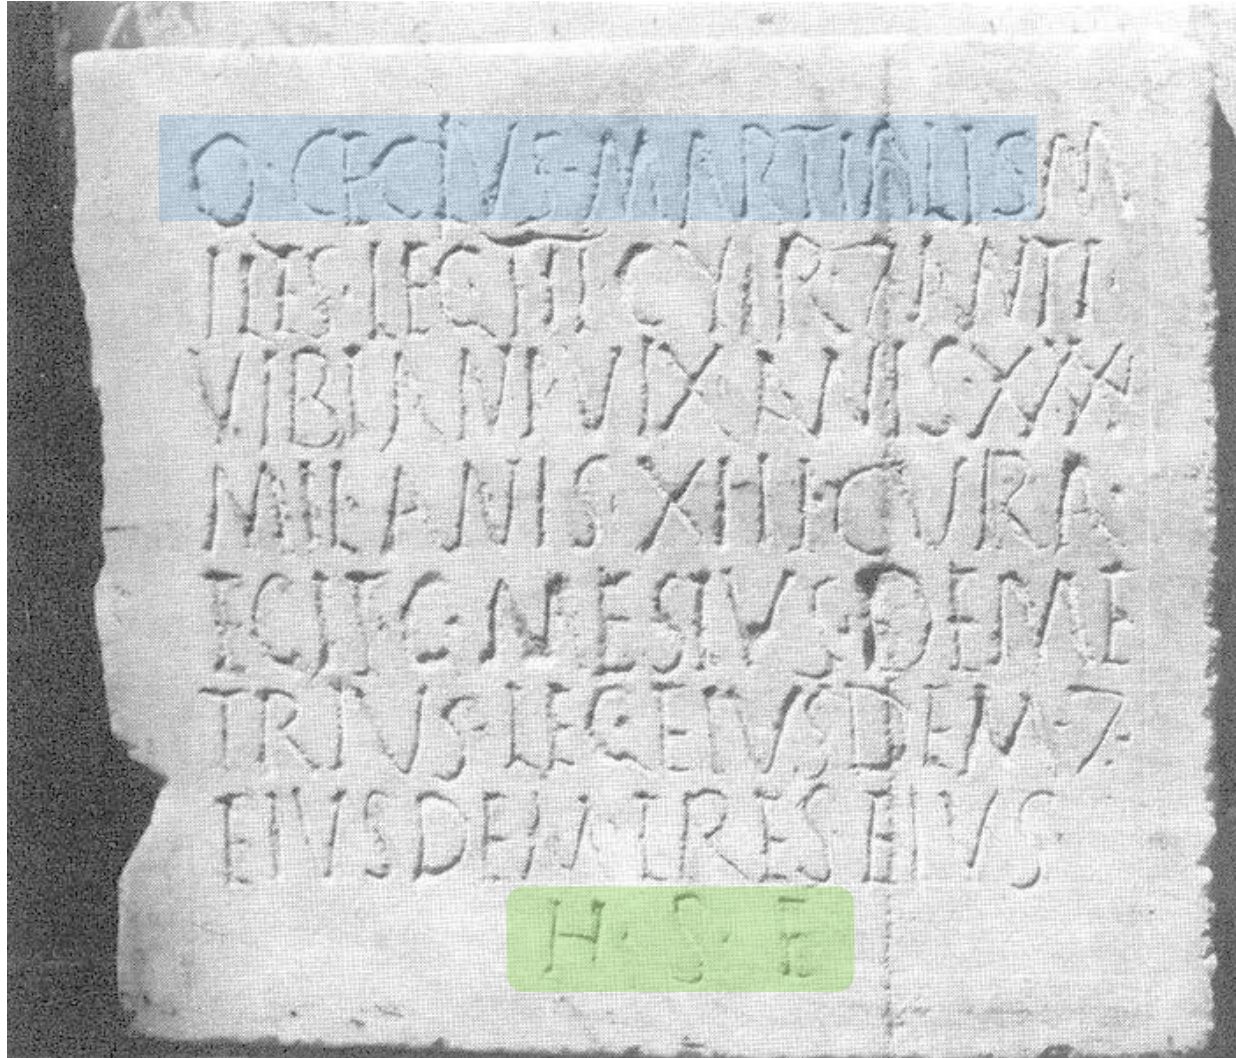 Q·CECIVS·MARTIALIS M
ILES LEG III CYR 7 ANTI
VIBIANI VIX ANIS XXX
MIL ANIS XIII CVRA
EGIT C·MESIVS·DEME
TRIVS·LEG·EIVSDEM·7·
EIVSDEM ERES EIVS
H·S·E